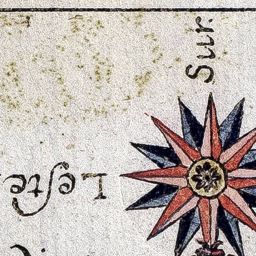 Sur
Leste